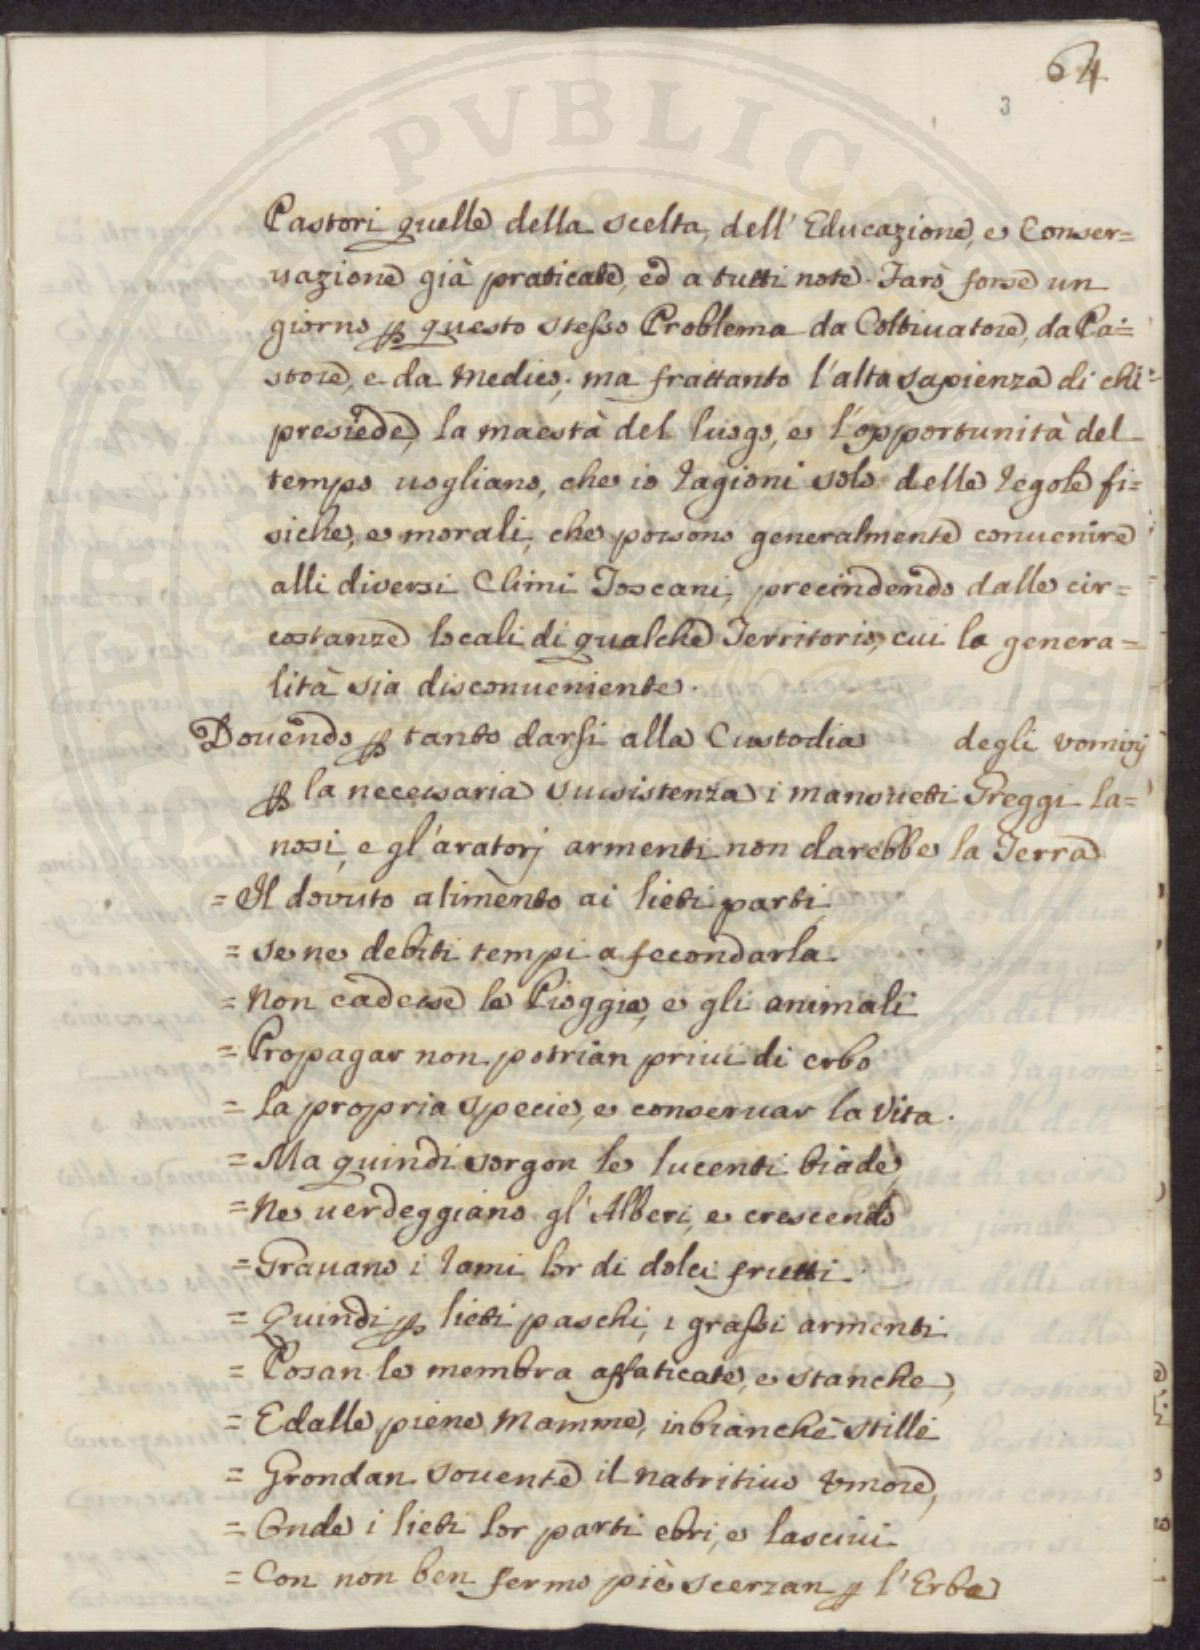 64
3
Pastori quelle della scelta, dell' Educazione, e Conser=
vazione già praticate, ed a tutti note. Farò forse un
giorno p questo stesso Problema da Coltivatore, da Pa=
store, e da Medico; ma frattanto l'alta sapienza di chi
presiede, la maestà del luogo, e l'opportunità del
tempo vogliano, che io ragioni solo delle regole fi=
siche, e morali, che possono generalmente convenire
alli diversi Climi Toscani, precindendo dalle cir=
costanze locali di qualche Territorio, cui la genera=
lità sia disconveniente.
Dovendo p tanto darsi alla Custodia degli vominj
p la necessaria sussistenza i mansueti Greggi la=
nosi, e gl'aratorj armenti non darebbe la Terra
= Il dovuto alimento ai lieti parti,
= se ne debiti tempi a fecondarla
= Non cadesse la Pioggia, e gli animali
= Propagar non potrian privi di erbo
= la propria specie, e conservar la vita.
= Ma quindi sorgon le lucenti biade,
= Ne verdeggiano gl'Alberi, e crescendo
= Gravano i rami lor di dolci frutti.
= Quindi p lieti paschi, i grassi armenti
= Posan le membra affaticate, e stanche,
= E dalle piene Mamme, in bianche stille
= Grondan sovente il nutritivo vmore,
= Onde i lieti lor parti ebri, e lascivi
= Con non ben fermo piè scerzan p l'Erba
PVBLICAE